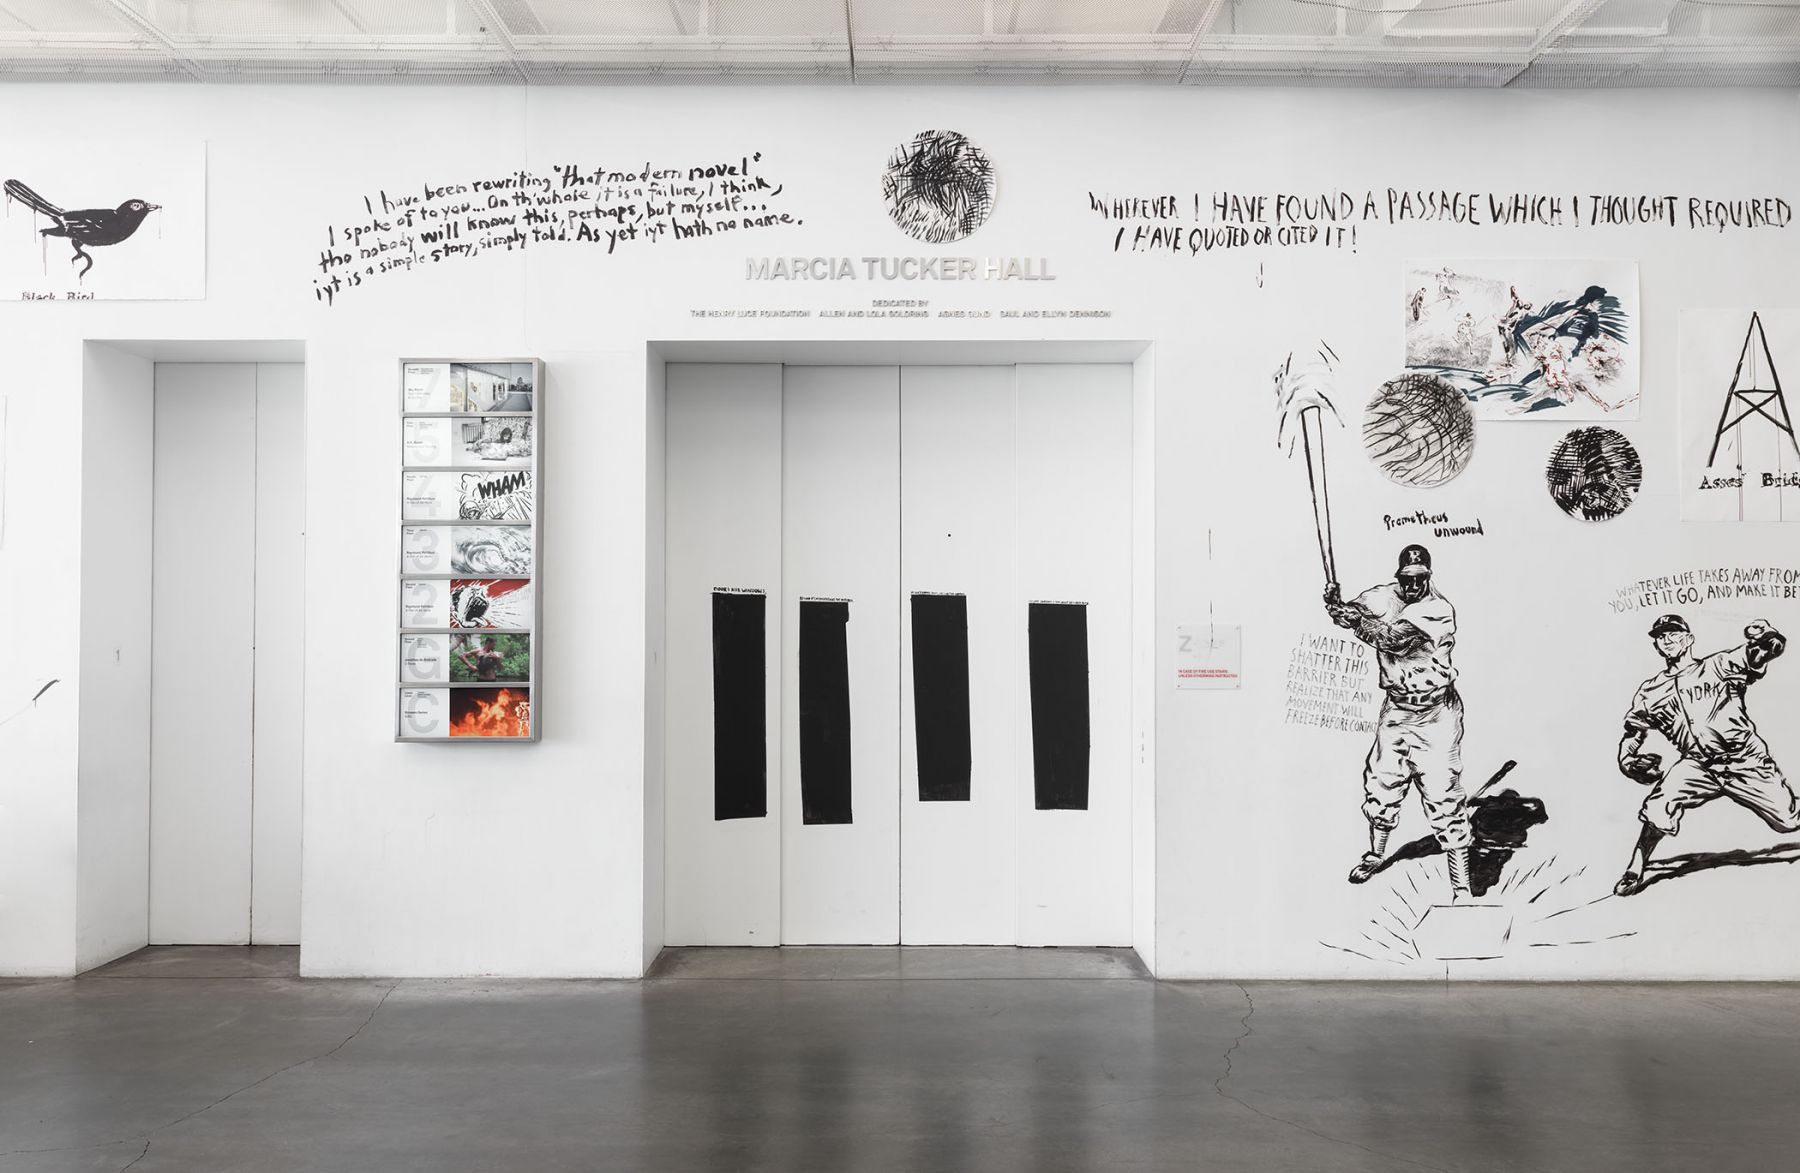 Black Bird
I have been rewriting "that modern novel"
I spoke of to you... On th' whole it is a failure, I think,
tho nobody will know this, perhaps, but myself...
iyt is a simple story, simply told. As yet iyt hath no name.
WHEREVER I HAVE FOUND A PASSAGE WHICH I THOUGHT REQUIRED
I HAVE QUOTED OR CITED IT!
MARCIA TUCKER HALL
DEDICATED BY
THE HENRY LUCE FOUNDATION ALLEN AND LOLA GOLDRING AGNES GUND SAUL AND ELLYN DENNISON
7
5
4
WHAM
3
2
G
C
Prometheus
unwound
B
I WANT TO
SHATTER THIS
BARRIER BUT
REALIZE THAT ANY
MOVEMENT WILL
FREEZE BEFORE CONTACT
Asses' Bridg
WHATEVER LIFE TAKES AWAY FROM
YOU, LET IT GO, AND MAKE IT BE
YORK
IN CASE OF FIRE USE STAIRS
UNLESS OTHERWISE INSTRUCTED